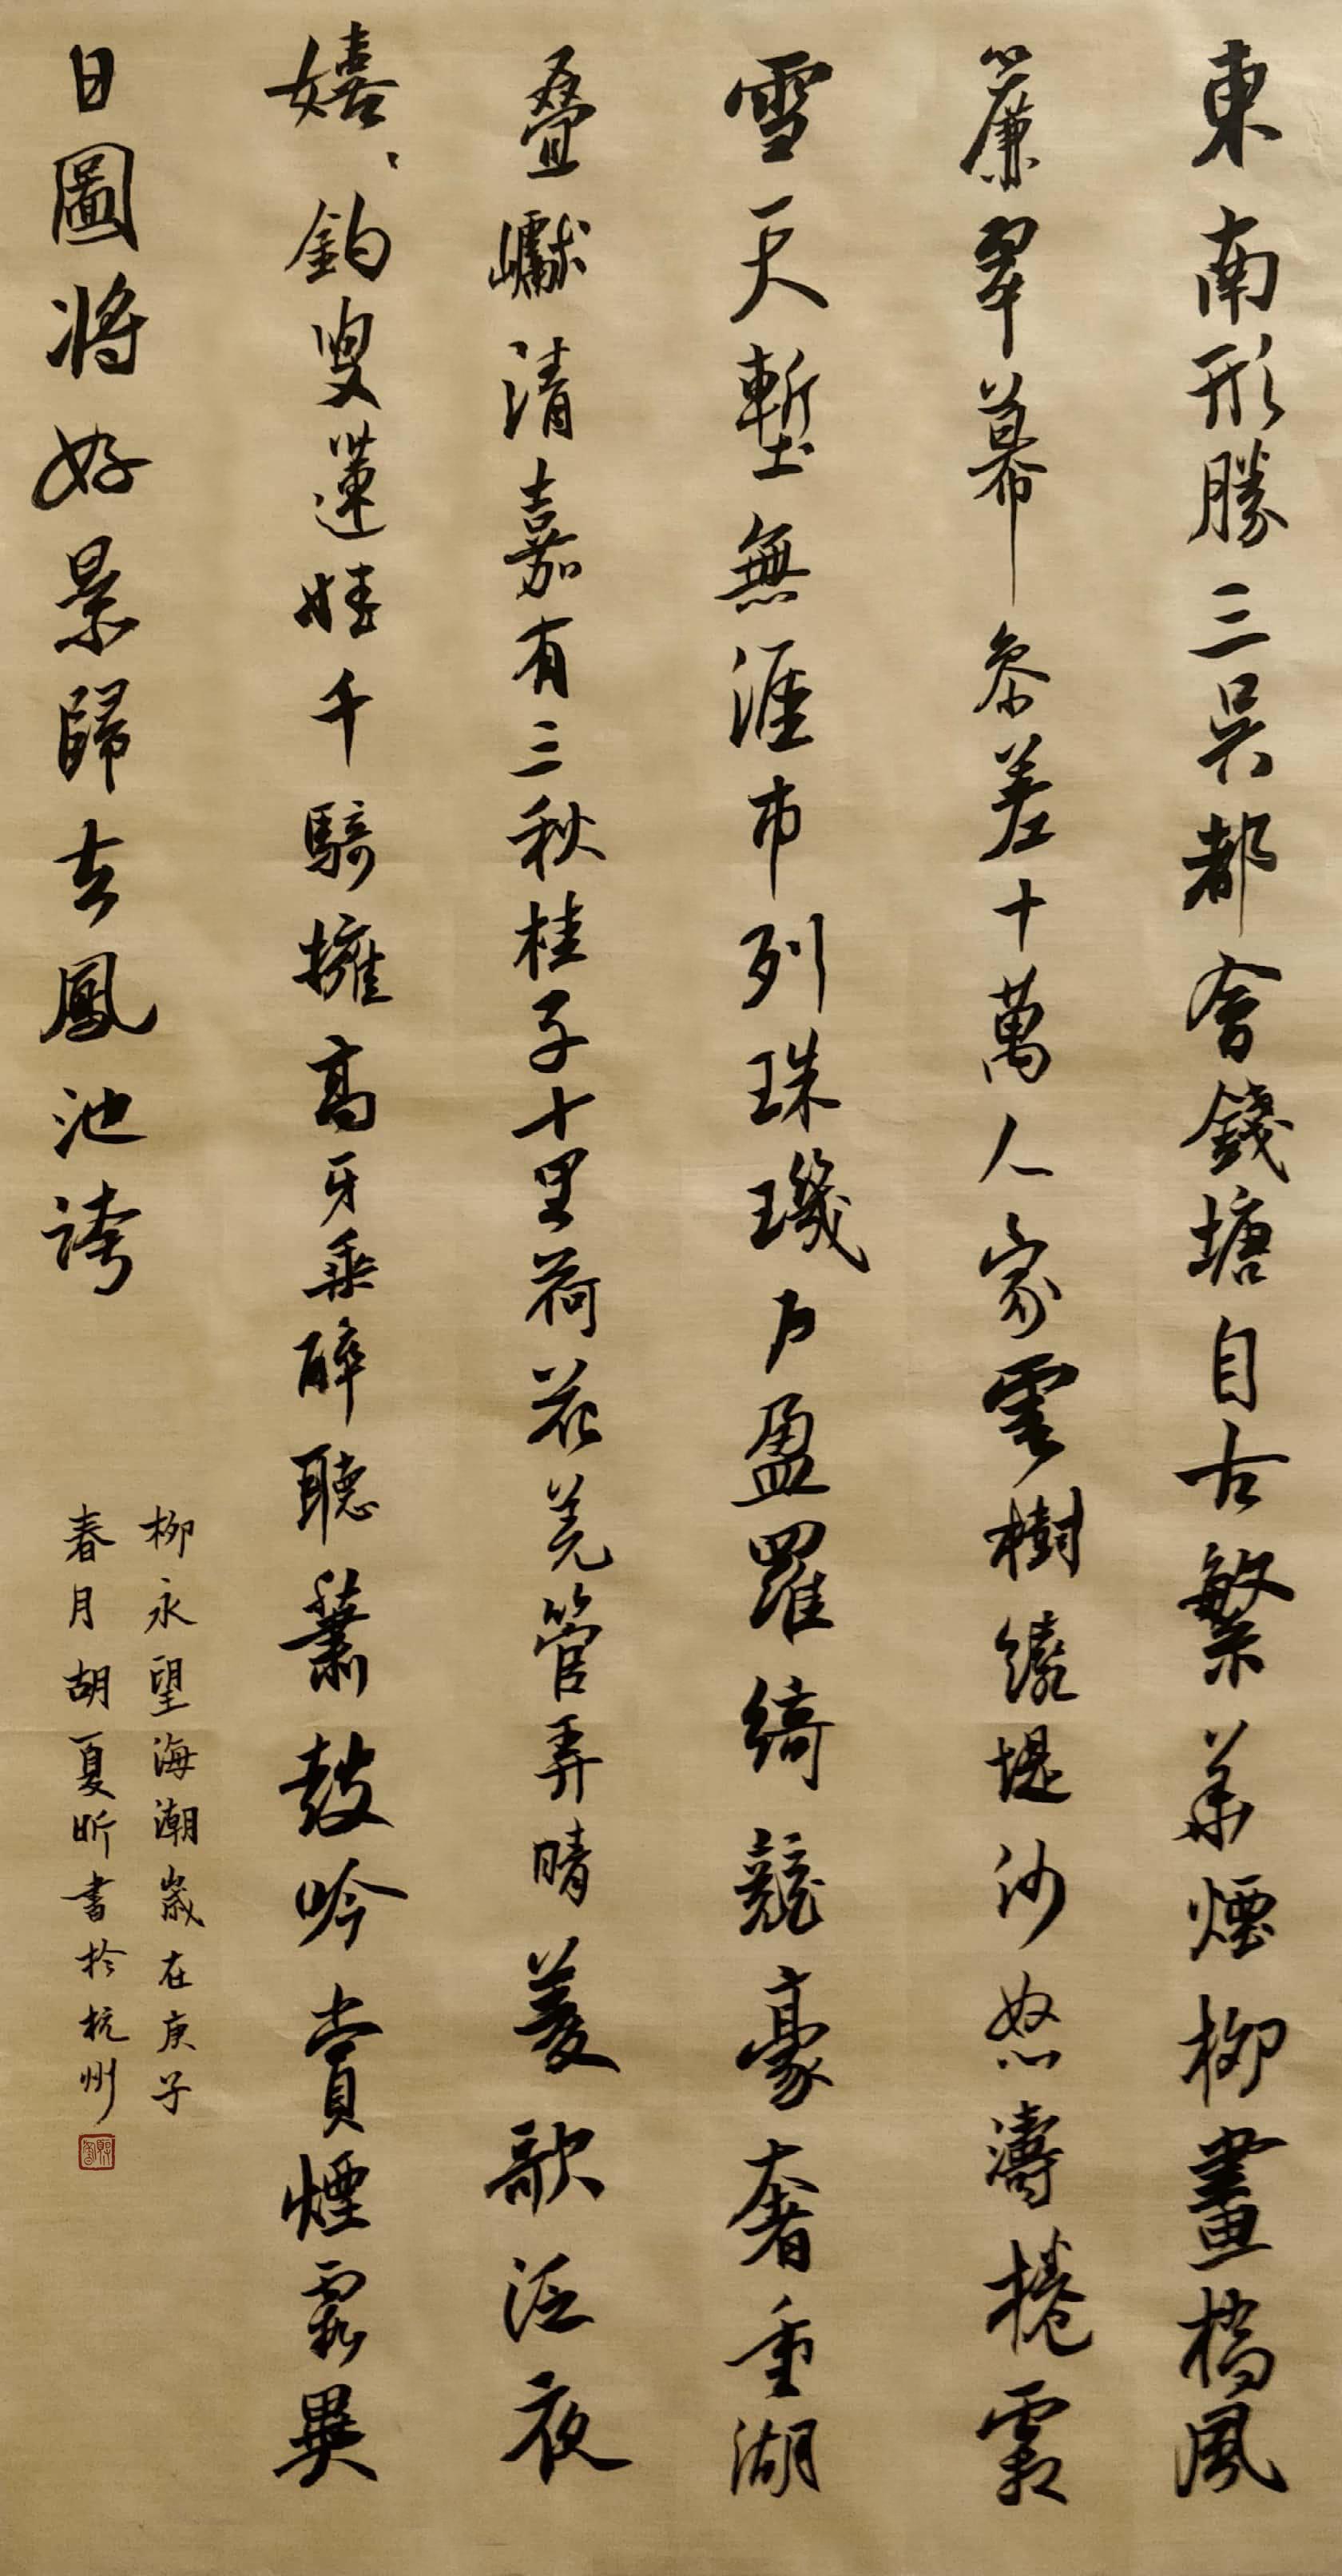 東南形勝三吳都會錢塘自古繁華煙柳畫橋風
簾翠幕參差十萬人家雲樹繞堤沙怒濤捲霜
雪天塹無涯市列珠璣戶盈羅綺競豪奢重湖
疊巘清嘉有三秋桂子十里荷花羌管弄晴菱歌泛夜
嬉嬉釣叟蓮娃千騎擁高牙乘醉聽簫鼓吟賞煙霞異
日圖將好景歸去鳳池誇
柳永望海潮歲在庚子
春月胡夏昕書於杭州